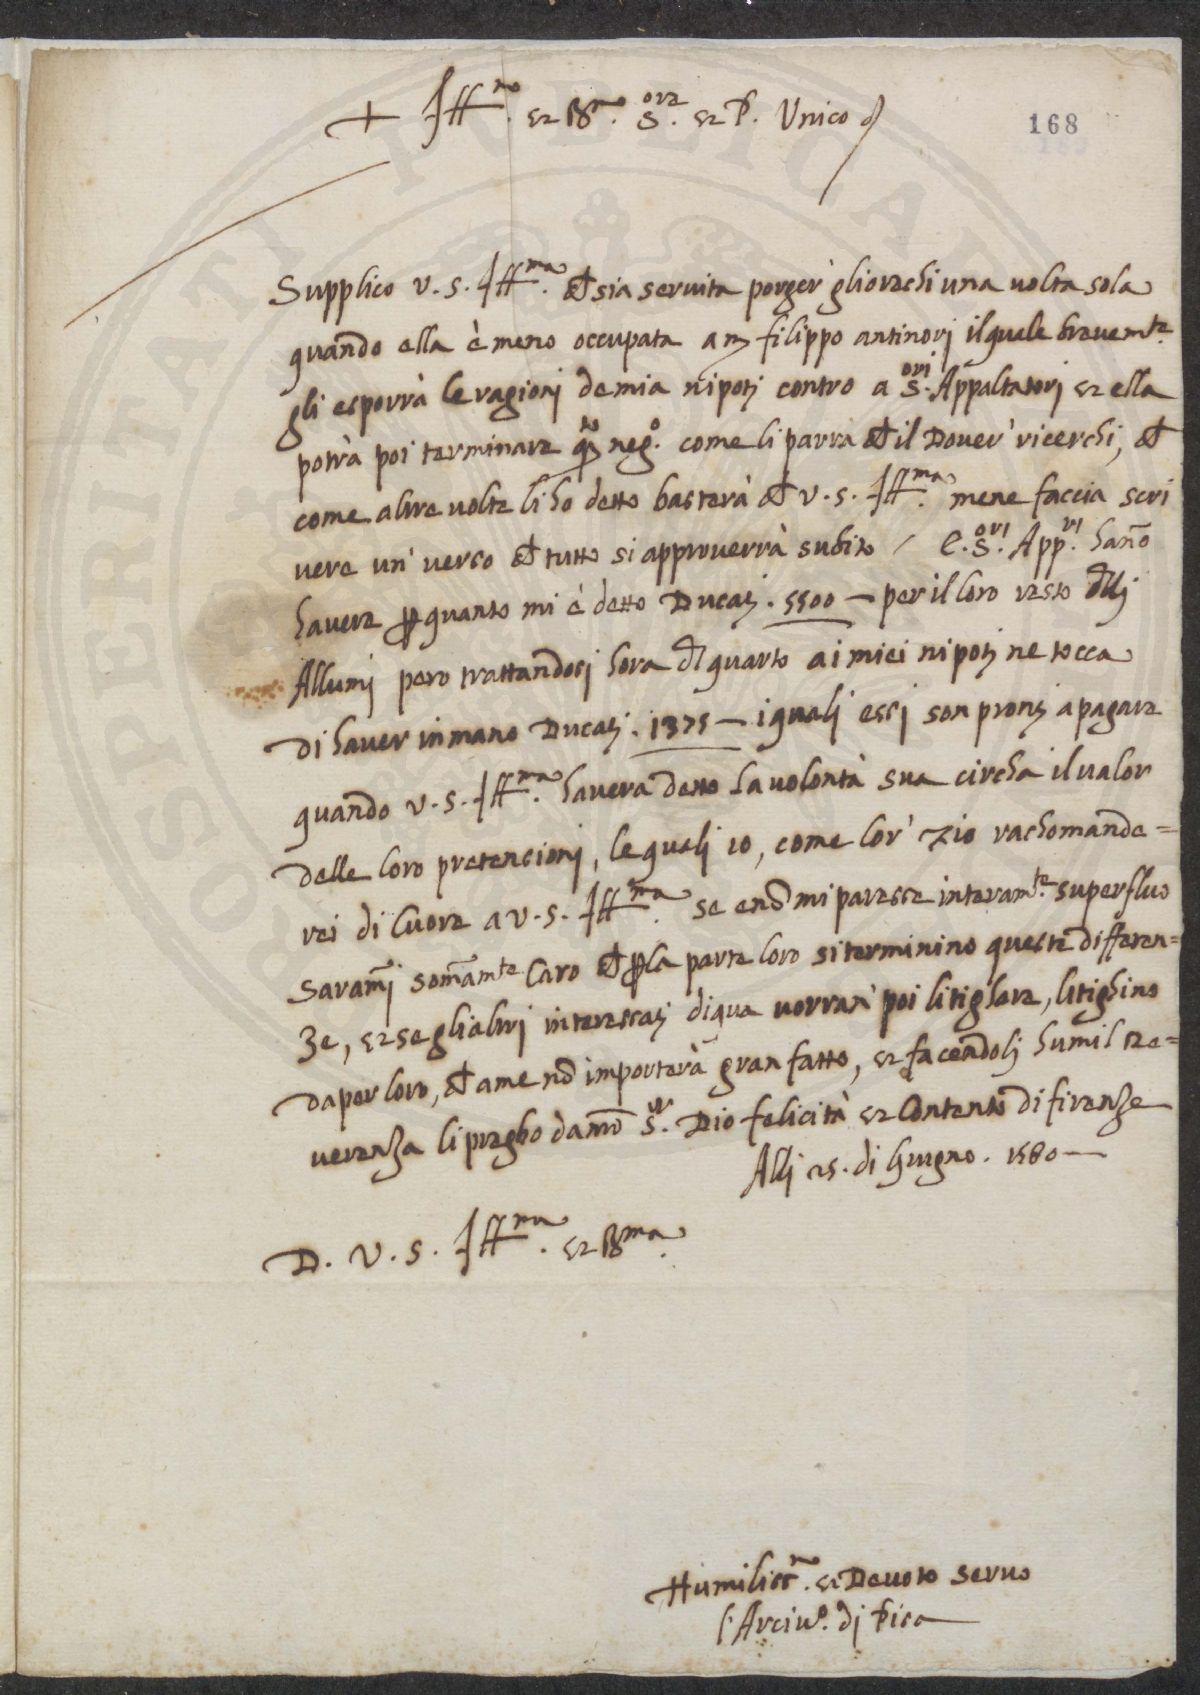 + Ill.mo et R.mo S.ore et P. Unico
168
Supplico V. S. Ill.ma che sia servita porger' gliorechi una volta sola
quando ella è meno occupata a m filippo antinori ilquale brevem.te
gli esporrà le ragioni de mia nipotj contro a S.ori Appaltatori et ella
potrà poi terminare q.to neg.o come li parra che il Dover' ricerchi, che
come altre volte li ho detto basterà che V. S. Ill.ma mene faccia scri
vere un' verso che tutto si approverrà subito / E. S.ori App.ri hano
havere per quanto mi è detto Ducatj . 5500 — per il loro resto dellj
Allumj pero trattandosj hora del quarto ai miei nipotj ne tocca
di haver in mano Ducatj . 1375 — iqualj essj son prontj a pagare
quando V. S. Ill.ma havera detto la volontà sua circha il valor
delle loro pretensionj, lequalj io, come lor' zio rachomande=
rei di Cuore a V. S. Ill.ma se eno mi paresse interam.te superfluo
Saramj somamte Caro che per la parte loro si terminino queste differen=
ze, et se glialtri interessatj diqua vorrano poi litighare, litighino
da per loro, che ame no importerà gran fatto, et facendolj humil re=
verenza li pregho da nro S.or Dio felicità et Contento di firenze
Allj 25. di Giugno . 1580 —
D. V. S. Ill.ma et R.ma
Humiliss.mo et Devoto servo
l'Arciv.o dj Pisa